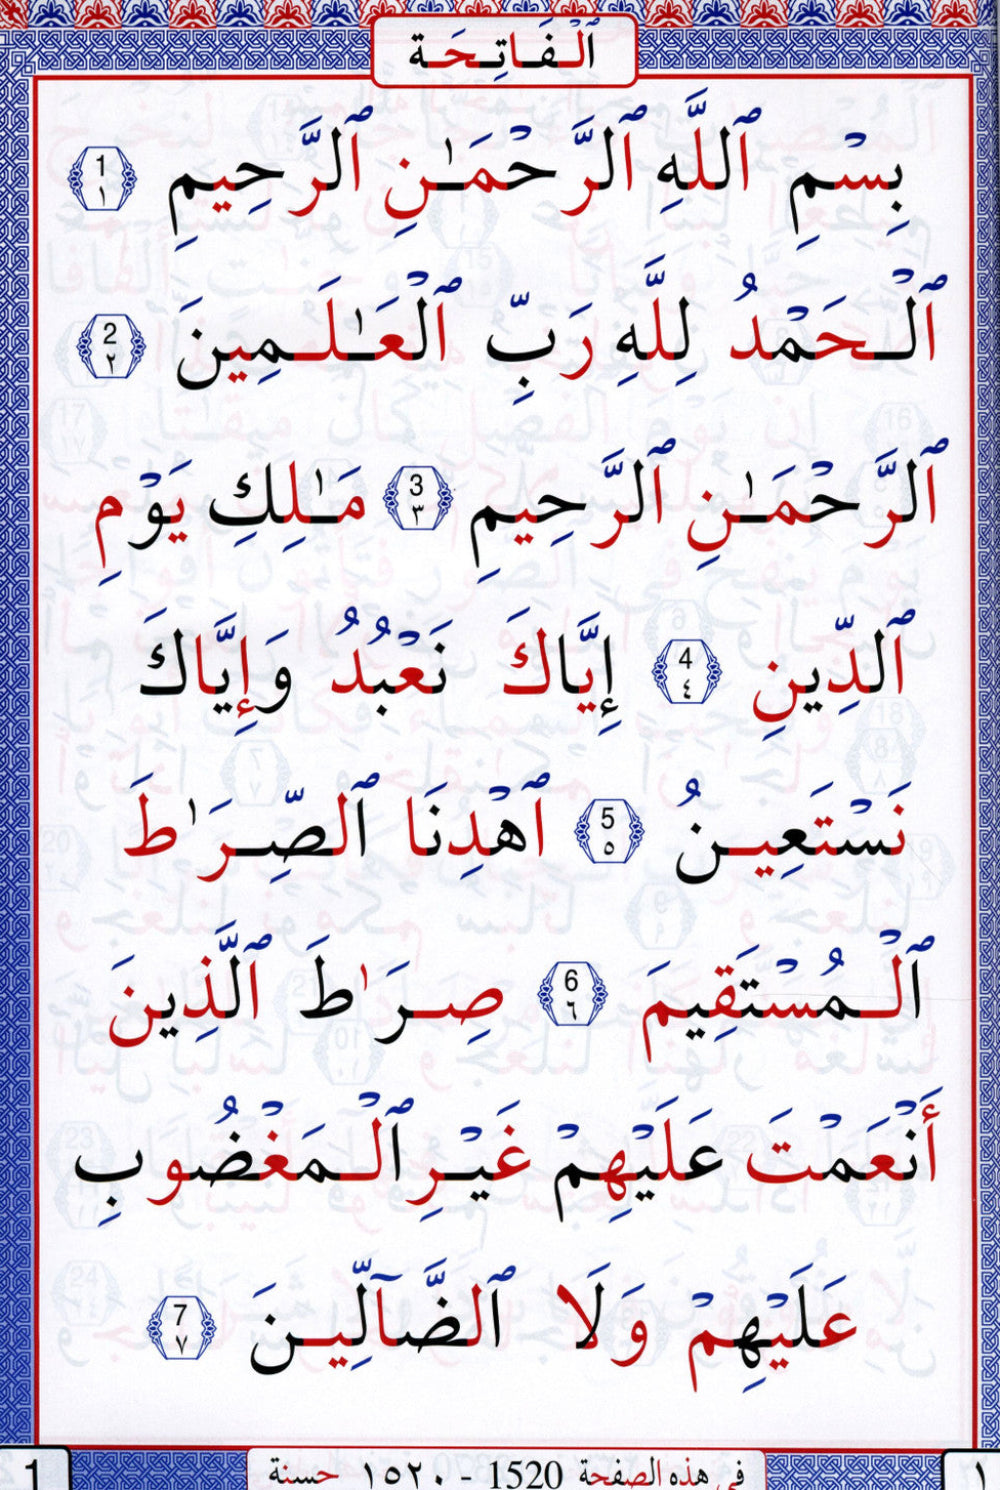 ٱلْفَاتِحَة
بِسْمِ ٱللَّهِ ٱلرَّحْمَـٰنِ ٱلرَّحِيمِ 1 ١
ٱلْـحَمْدُ لِلَّهِ رَبِّ ٱلْعَـٰلَـمِينَ 2 ٢
ٱلرَّحْمَـٰنِ ٱلرَّحِيمِ 3 ٣ مَـٰلِكِ يَوْمِ
ٱلدِّينِ 4 ٤ إِيَّاكَ نَعْبُدُ وَإِيَّاكَ
نَسْتَعِيـنُ 5 ٥ ٱهْدِنَا ٱلصِّـرَٰطَ
ٱلْـمُسْتَقِيمَ 6 ٦ صِـرَٰطَ ٱلَّذِينَ
أَنْعَمْتَ عَلَيْهِمْ غَيْـرِ ٱلْـمَغْضُوبِ
عَلَيْهِمْ وَلَا ٱلضَّآلِّيـنَ 7 ٧
1 في هذه الصفحة 1520 - ١٥٢٠ حسنة ١